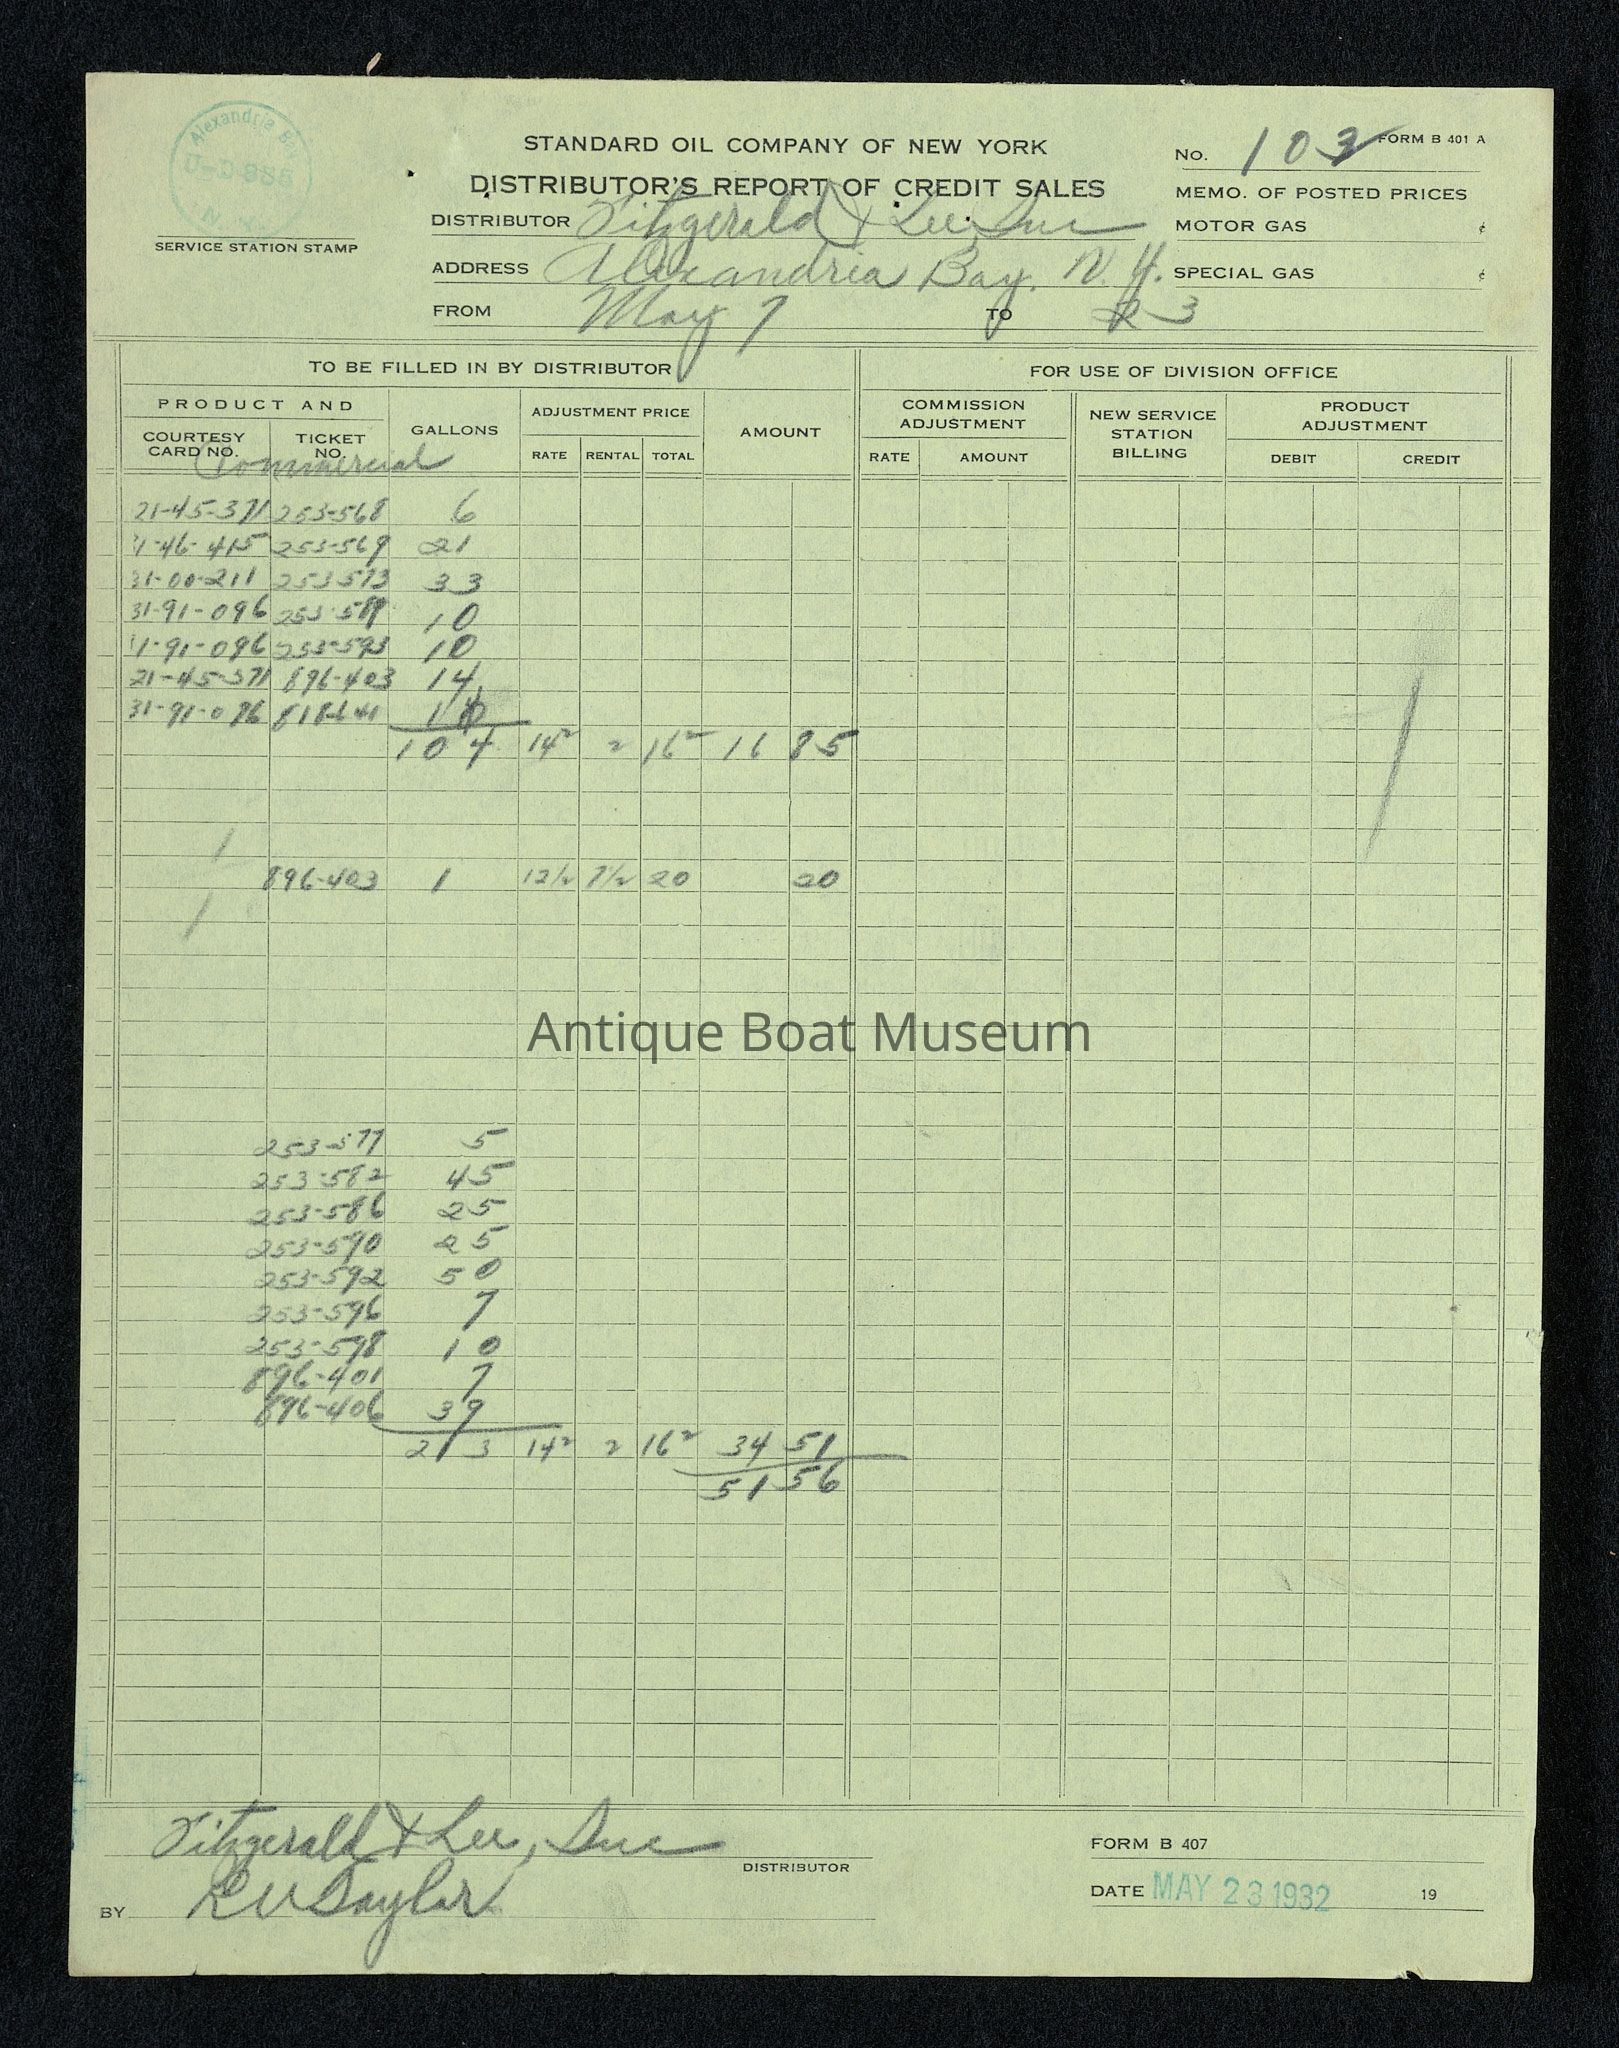 Alexandria Bay
N.Y.
SERVICE STATION STAMP
STANDARD OIL COMPANY OF NEW YORK
DISTRIBUTOR'S REPORT OF CREDIT SALES
DISTRIBUTOR Fitzgerald & Lee, Inc
ADDRESS Alexandria Bay, N.Y.
FROM May 7 TO 23
FORM B 401 A
No. 103
MEMO. OF POSTED PRICES
MOTOR GAS ¢
SPECIAL GAS ¢
TO BE FILLED IN BY DISTRIBUTOR FOR USE OF DIVISION OFFICE
PRODUCT AND
COURTESY CARD NO. TICKET NO. GALLONS ADJUSTMENT PRICE RATE RENTAL TOTAL AMOUNT COMMISSION ADJUSTMENT RATE AMOUNT NEW SERVICE STATION BILLING PRODUCT ADJUSTMENT DEBIT CREDIT
Commercial
21-45-371 253-568 6
1-46-415 253-569 21
31-00-211 253-573 33
31-91-096 253-589 10
1-91-096 253-593 10
21-45-371 896-403 14
31-91-096 818-641 10
104 14² 2 16² 16 85
896-403 1 12½ 7½ 20 20
Antique Boat Museum
253-577 5
253-582 45
253-586 25
253-590 25
253-592 50
253-596 7
253-598 10
896-401 7
896-406 39
213 14² 2 16² 34 51
51 56
Fitzgerald & Lee, Inc
DISTRIBUTOR
BY
FORM B 407
DATE MAY 23 1932 19